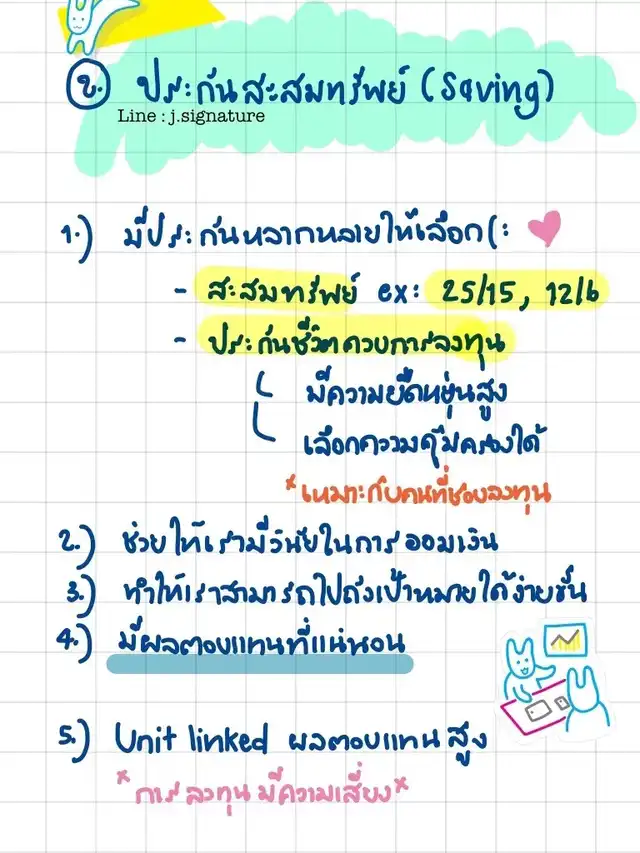 2. ประกันสะสมทรัพย์ (Saving)
Line : j.signature
1.) มีประกันหลากหลายให้เลือก(:
- สะสมทรัพย์ ex: 25/15, 12/6
- ประกันชีวิตควบการลงทุน
มีความยืดหยุ่นสูง
เลือกความคุ้มครองได้
*เหมาะกับคนที่ชอบลงทุน
2.) ช่วยให้เรามีวินัยในการออมเงิน
3.) ทำให้เราสามารถไปถึงเป้าหมายได้ง่ายขึ้น
4.) มีผลตอบแทนที่แน่นอน
5.) Unit linked ผลตอบแทนสูง
*การลงทุนมีความเสี่ยง*